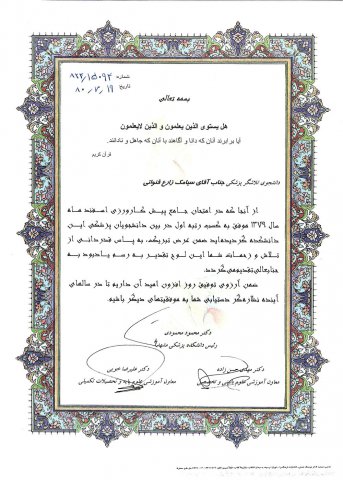 شماره ۸۲۲/۱۵۰۹۲
تاریخ ۸۰/۷/۱۱
بسمه تعالی
هل یستوی الذین یعلمون و الذین لایعلمون
آیا برابرند آنان که دانا و آگاهند با آنان که جاهل و نادانند.
قرآن کریم
دانشجوی تلاشگر پزشکی جناب آقای سیامک زارع قنواتی
از آنجا که در امتحان جامع پیش کارورزی اسفند ماه
سال ۱۳۷۹ موفق به کسب رتبه اول در بین دانشجویان پزشکی این
دانشکده گردیده‌اید ضمن عرض تبریک، به پاس قدردانی از
تلاش و زحمات شما این لوح تقدیر به رسم یادبود به
جنابعالی تقدیم می‌گردد.
ضمن آرزوی توفیق روز افزون امید آن داریم تا در سالهای
آینده نظاره‌گر دستیابی شما به موفقیتهای دیگر باشیم.
دکتر محمود محمودی
رئیس دانشکده پزشکی مشهد
دکتر مهدی حسن زاده
معاون آموزشی علوم بالینی و تخصصی
دکتر علیرضا خویی
معاون آموزشی علوم پایه و تحصیلات تکمیلی